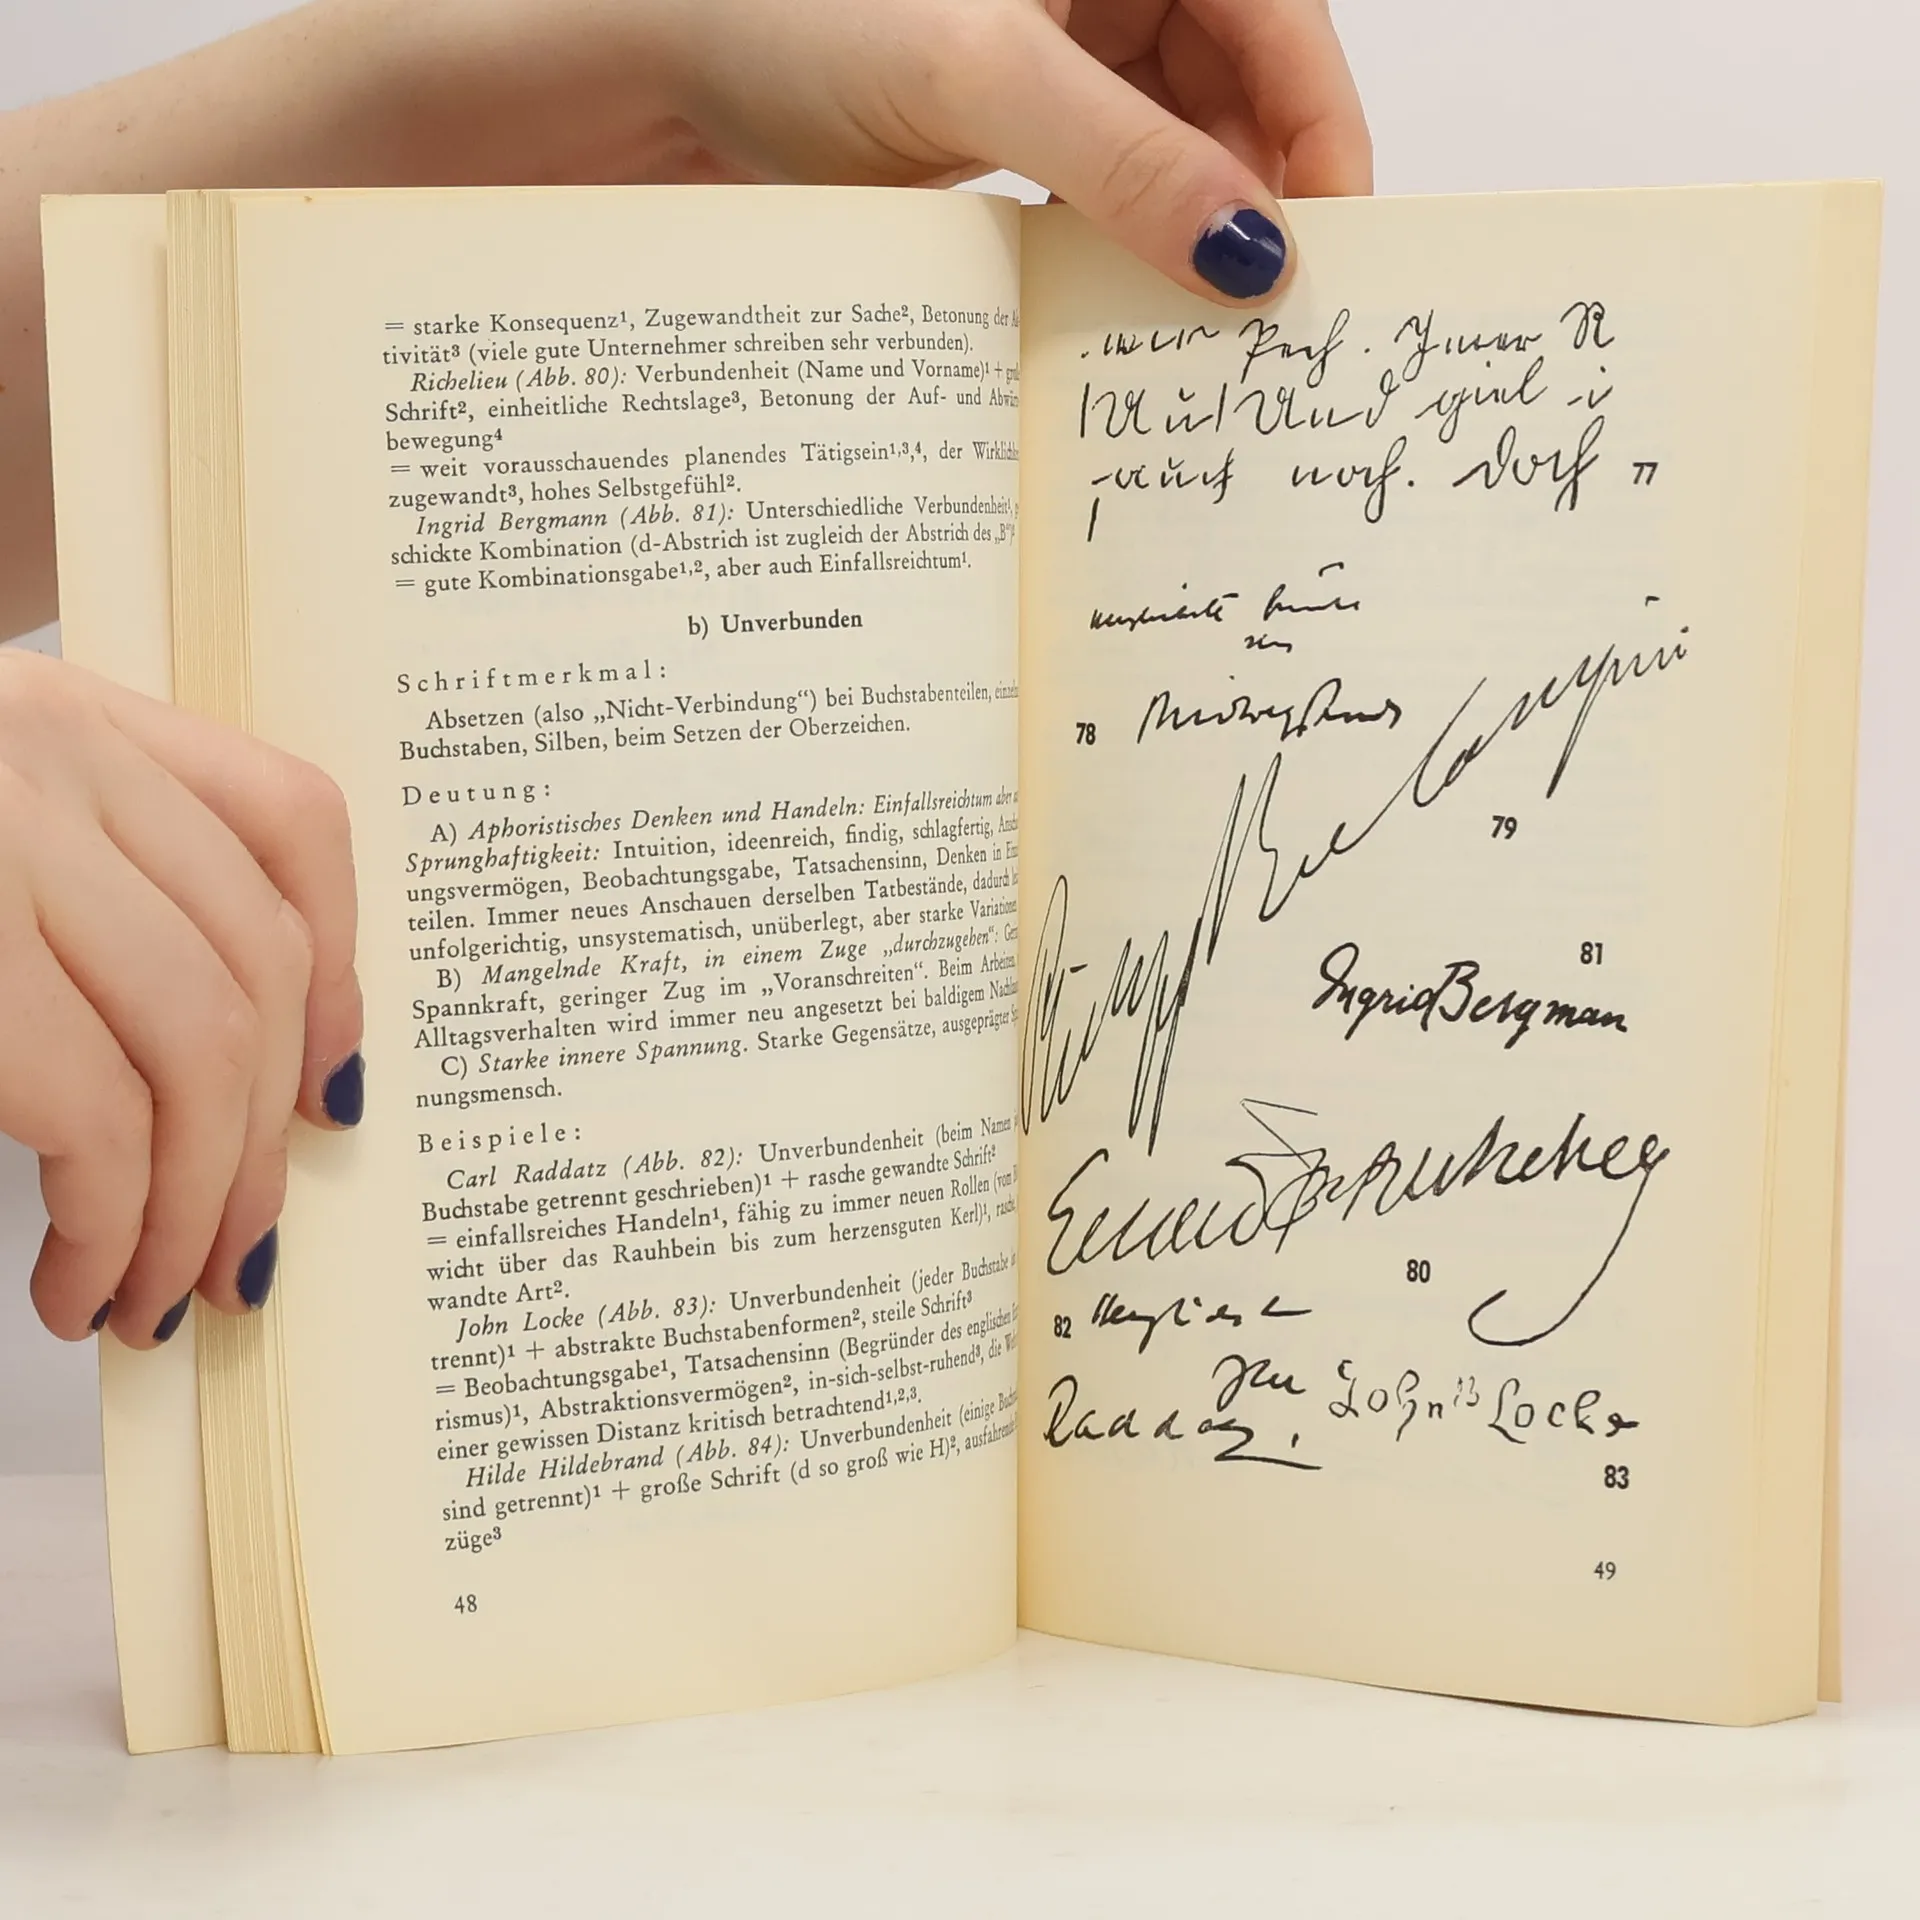 = starke Konsequenz¹, Zugewandtheit zur Sache², Betonung der
tivität³ (viele gute Unternehmer schreiben sehr verbunden).
Richelieu (Abb. 80): Verbundenheit (Name und Vorname)¹ +
Schrift², einheitliche Rechtslage³, Betonung der Auf- und
bewegung⁴
= weit vorausschauendes planendes Tätigsein¹,³,⁴, der
zugewandt³, hohes Selbstgefühl².
Ingrid Bergmann (Abb. 81): Unterschiedliche Verbundenheit¹,
schickte Kombination (d-Abstrich ist zugleich der Abstrich des „B“)²
= gute Kombinationsgabe¹,², aber auch Einfallsreichtum¹.
b) Unverbunden
Schriftmerkmal:
Absetzen (also „Nicht-Verbindung“) bei Buchstabenteilen,
Buchstaben, Silben, beim Setzen der Oberzeichen.
Deutung:
A) Aphoristisches Denken und Handeln: Einfallsreichtum aber
Sprunghaftigkeit: Intuition, ideenreich, findig, schlagfertig,
ungsvermögen, Beobachtungsgabe, Tatsachensinn, Denken in
teilen. Immer neues Anschauen derselben Tatbestände, dadurch
unfolgerichtig, unsystematisch, unüberlegt, aber starke
B) Mangelnde Kraft, in einem Zuge „durchzugehen“:
Spannkraft, geringer Zug im „Voranschreiten“. Beim Arbeiten
Alltagsverhalten wird immer neu angesetzt bei baldigem
C) Starke innere Spannung. Starke Gegensätze, ausgeprägter
nungsmensch.
Beispiele:
Carl Raddatz (Abb. 82): Unverbundenheit (beim Namen
Buchstabe getrennt geschrieben)¹ + rasche gewandte Schrift²
= einfallsreiches Handeln¹, fähig zu immer neuen Rollen (vom
wicht über das Rauhbein bis zum herzensguten Kerl)¹,
wandte Art².
John Locke (Abb. 83): Unverbundenheit (jeder Buchstabe
trennt)¹ + abstrakte Buchstabenformen², steile Schrift³
= Beobachtungsgabe¹, Tatsachensinn (Begründer des englischen
rismus)¹, Abstraktionsvermögen², in-sich-selbst-ruhend³, die
einer gewissen Distanz kritisch betrachtend¹,²,³.
Hilde Hildebrand (Abb. 84): Unverbundenheit (einige
sind getrennt)¹ + große Schrift (d so groß wie H)²,
züge³
48
Pech. Immer
Und viel
auch noch. Doch 77
78
79
81
Ingrid Bergman
80
82
Ihr
Raddatz
John Locke
83
49